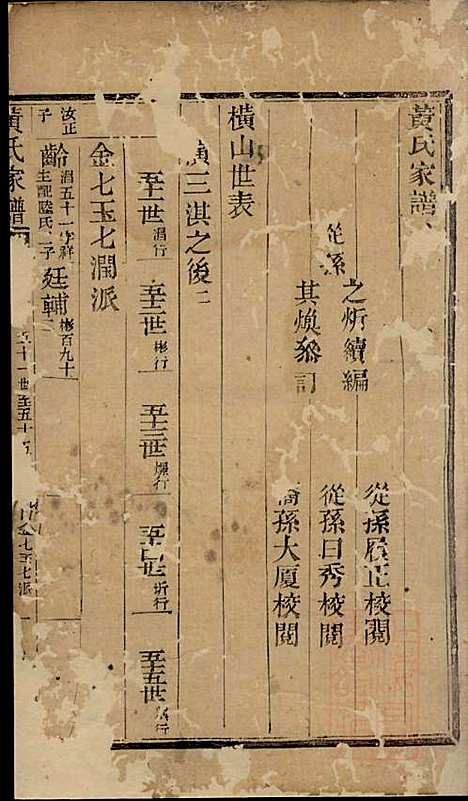 黃氏家譜
從孫
之炘續編
其煥參訂
從孫殿正校閱
從孫日秀校閱
裔孫大厦校閱
橫山世表
三淇之後
五十一世 淐行 五十二世 彬行 五十三世 行 五十四世 圻行 五十五世 行
金七玉七潤派
汝正子 齡 淐五十一字祥 主配陸氏 子 廷輔 彬百九十
黃氏家譜 十一世至五十 金七玉七派